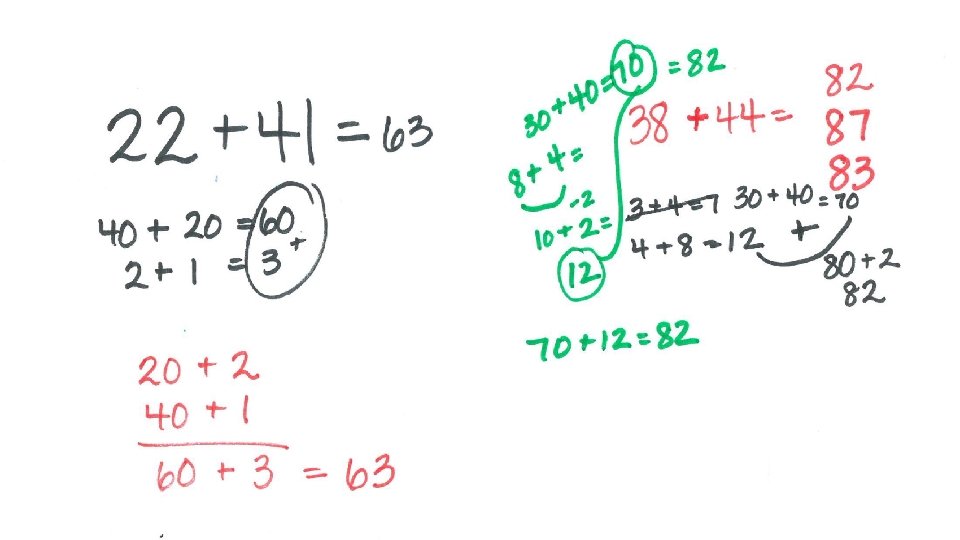 22 + 41 = 63
40 + 20 = 60
2 + 1 = 3 +
20 + 2
40 + 1
60 + 3 = 63
30 + 40 = 70 = 82
8 + 4 =
-2
10 + 2 =
12
70 + 12 = 82
38 + 44 =
82
87
83
3 + 4 = 7
30 + 40 = 70
4 + 8 = 12 +
80 + 2
82